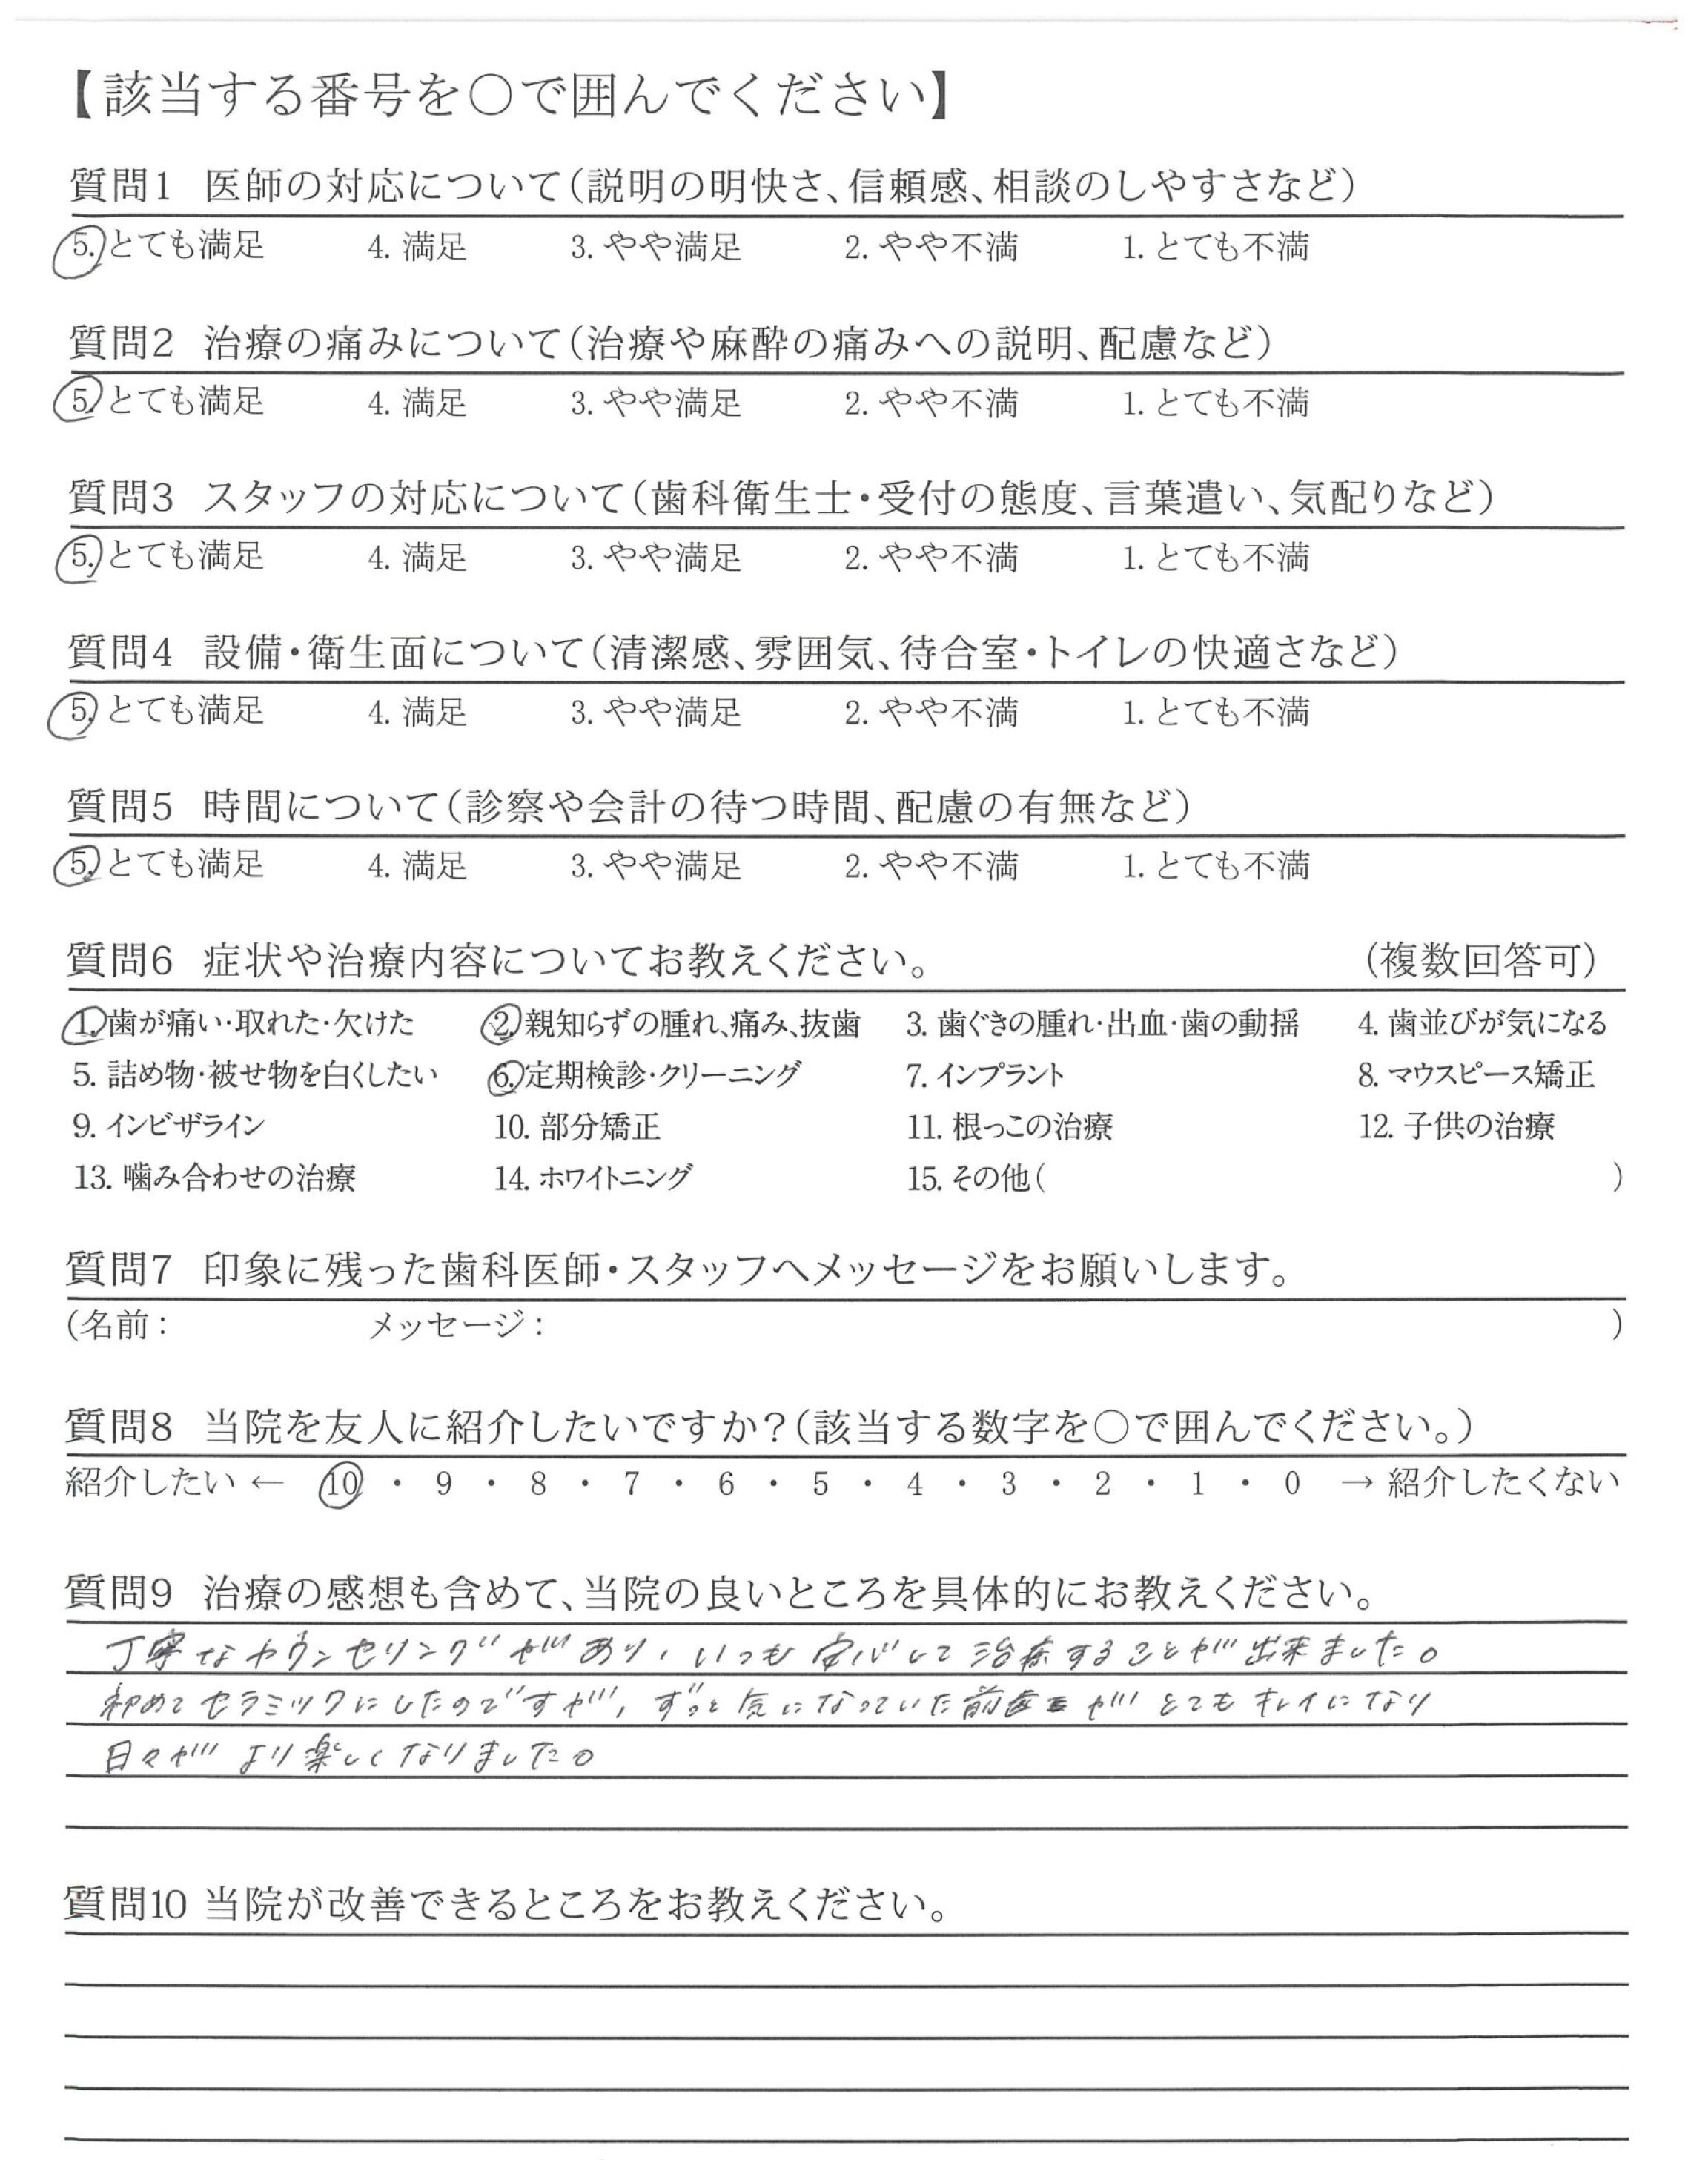 【該当する番号を〇で囲んでください】
質問1 医師の対応について(説明の明快さ、信頼感、相談のしやすさなど)
5. とても満足 4. 満足 3. やや満足 2. やや不満 1. とても不満
質問2 治療の痛みについて(治療や麻酔の痛みへの説明、配慮など)
5. とても満足 4. 満足 3. やや満足 2. やや不満 1. とても不満
質問3 スタッフの対応について(歯科衛生士・受付の態度、言葉遣い、気配りなど)
5. とても満足 4. 満足 3. やや満足 2. やや不満 1. とても不満
質問4 設備・衛生面について(清潔感、雰囲気、待合室・トイレの快適さなど)
5. とても満足 4. 満足 3. やや満足 2. やや不満 1. とても不満
質問5 時間について(診察や会計の待つ時間、配慮の有無など)
5. とても満足 4. 満足 3. やや満足 2. やや不満 1. とても不満
質問6 症状や治療内容についてお教えください。 (複数回答可)
1. 歯が痛い・取れた・欠けた 2. 親知らずの腫れ、痛み、抜歯 3. 歯ぐきの腫れ・出血・歯の動揺 4. 歯並びが気になる
5. 詰め物・被せ物を白くしたい 6. 定期検診・クリーニング 7. インプラント 8. マウスピース矯正
9. インビザライン 10. 部分矯正 11. 根っこの治療 12. 子供の治療
13. 噛み合わせの治療 14. ホワイトニング 15. その他( )
質問7 印象に残った歯科医師・スタッフへメッセージをお願いします。
(名前: メッセージ: )
質問8 当院を友人に紹介したいですか?(該当する数字を〇で囲んでください。)
紹介したい ← 10 ・ 9 ・ 8 ・ 7 ・ 6 ・ 5 ・ 4 ・ 3 ・ 2 ・ 1 ・ 0 → 紹介したくない
質問9 治療の感想も含めて、当院の良いところを具体的にお教えください。
丁寧なカウンセリングがあり、いつも安心して治療することが出来ました。
初めてセラミックにしたのですが、ずっと気になっていた前歯がとてもキレイになり
日々がより楽しくなりました。
質問10 当院が改善できるところをお教えください。